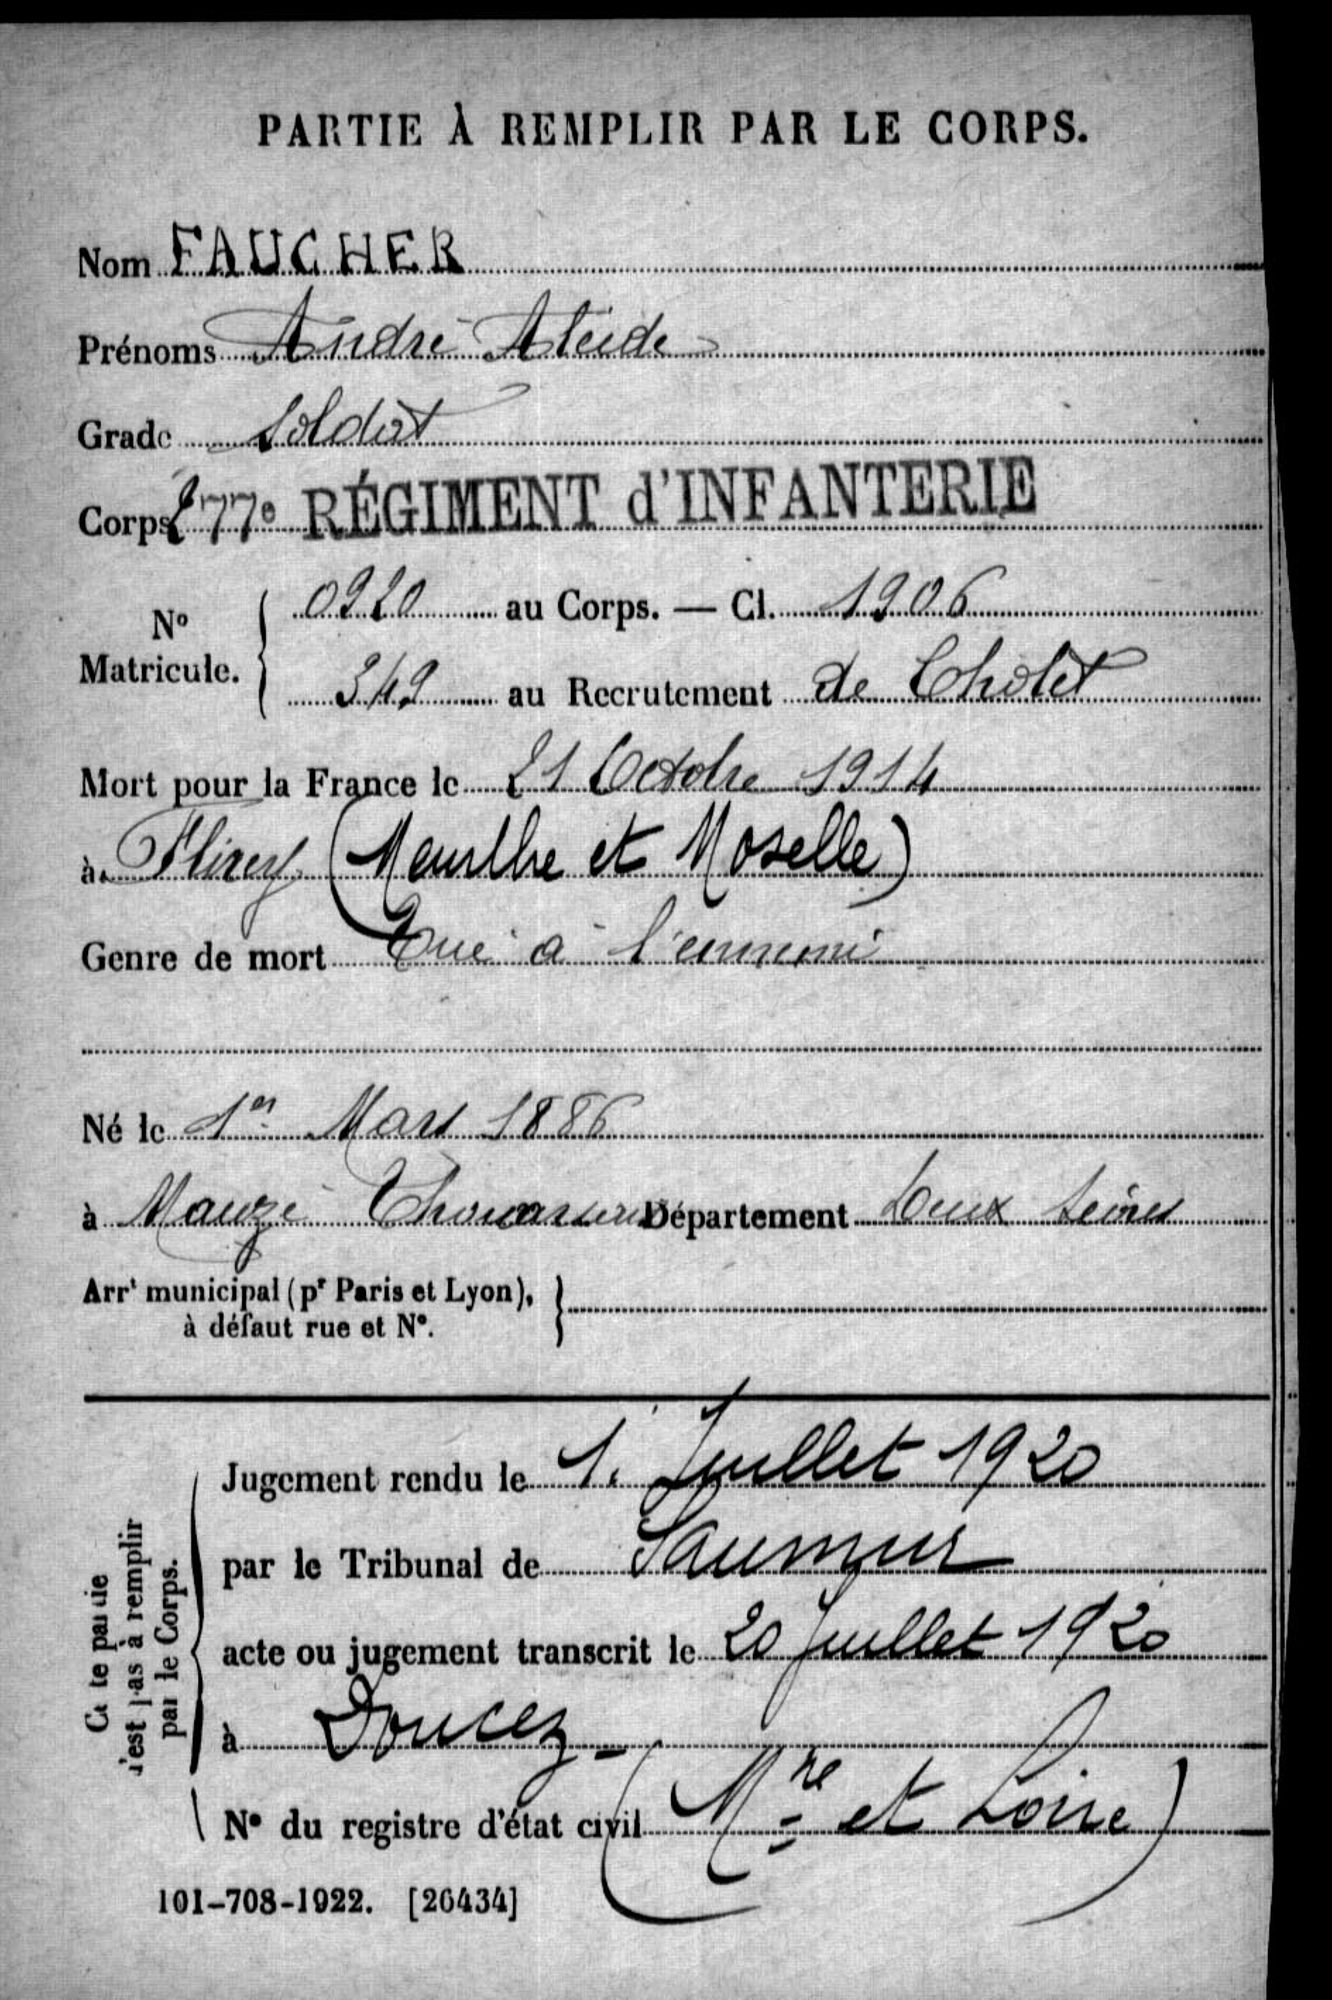 PARTIE À REMPLIR PAR LE CORPS.
Nom FAUCHER
Prénoms André Alcide
Grade Soldat
Corps 277e RÉGIMENT d'INFANTERIE
No Matricule. 0920 au Corps. — Cl. 1906
349 au Recrutement de Cholet
Mort pour la France le 21 Octobre 1914
à Flirey (Meurthe et Moselle)
Genre de mort Tué à l'ennemi
Né le 1er Mars 1886
à Mauzé Thouarsais Département Deux Sèvres
Arrt municipal (pr Paris et Lyon),
à défaut rue et No.
Cette partie
n'est pas à remplir
par le Corps.
Jugement rendu le 1. Juillet 1920
par le Tribunal de Saumur
acte ou jugement transcrit le 20 Juillet 1920
à Doucez -
No du registre d'état civil (Mre et Loire)
101-708-1922. [26434]